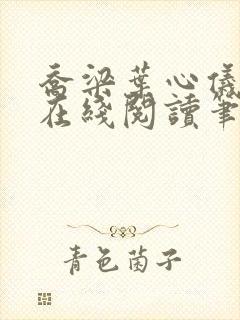 喬梁葉心儀
在綫閱讀筆
青色茵子